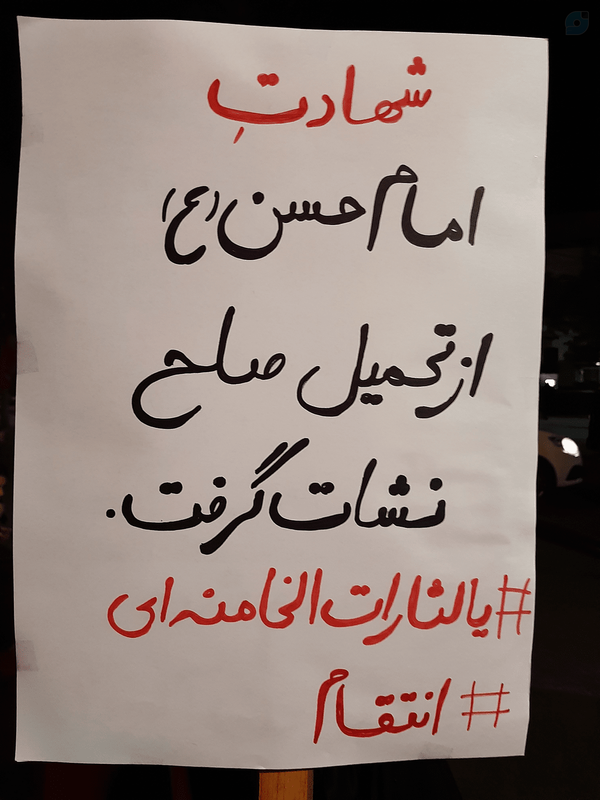 شهادتِ
امام حسن (ع)
از تحمیل صلح
نشات گرفت.
#یالثارات الخامنه ای
#انتقام